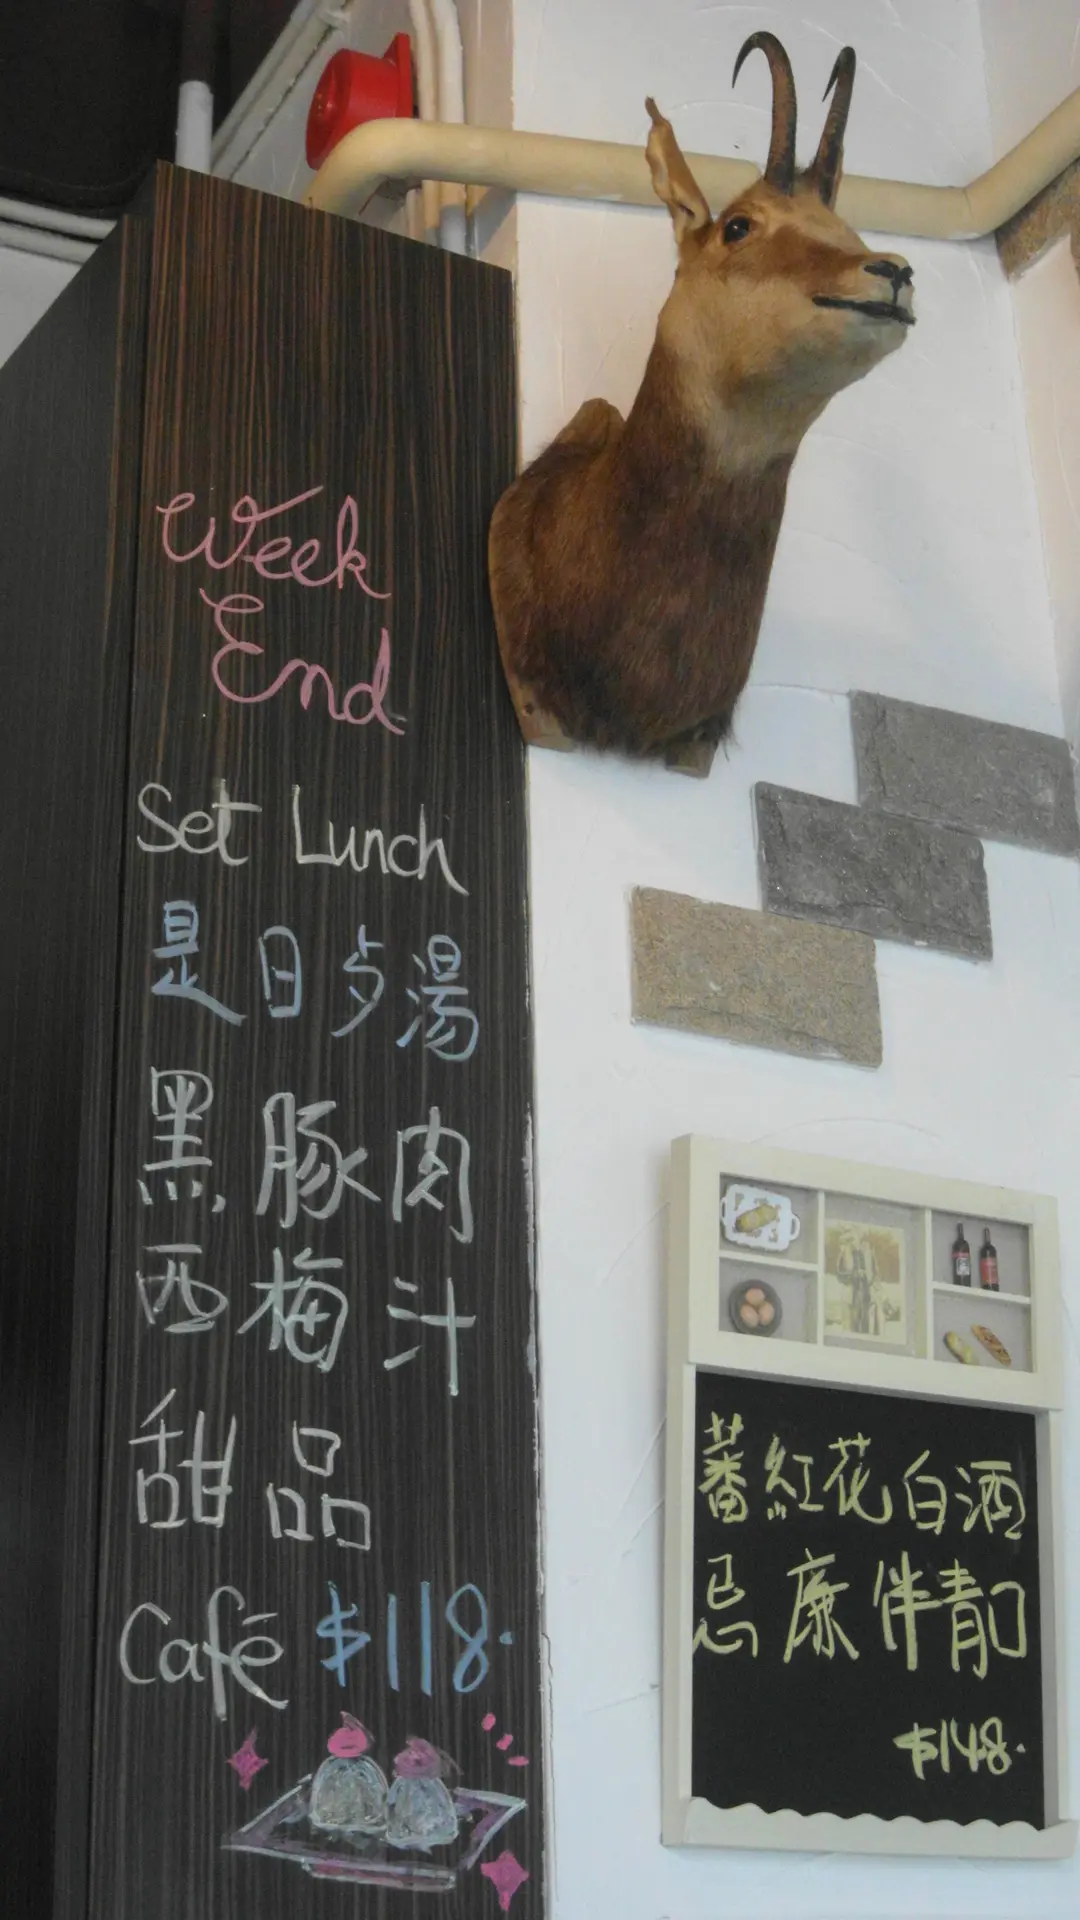 Week
End
Set Lunch
是日歺湯
黑豚肉
西梅汁
甜品
Café $118.
蕃紅花白酒
忌廉伴青口
$148.